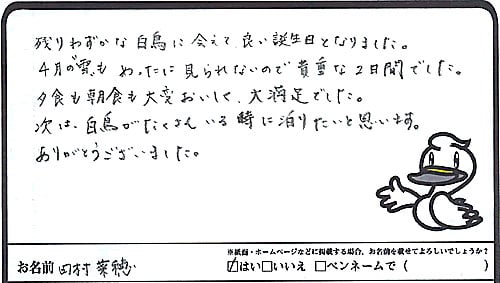 残りわずかな白鳥に会えて、良い誕生日となりました。
4月の雪もめったに見られないので貴重な2日間でした。
夕食も朝食も大変おいしく、大満足でした。
次は、白鳥がたくさんいる時に泊りたいと思います。
ありがとうございました。
※紙面・ホームページなどに掲載する場合、お名前を載せてよろしいでしょうか？
お名前 田村 菜穂 ☑はい□いいえ □ペンネームで（　　　）